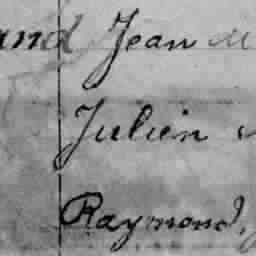 and Jean M
Julien
Raymond,